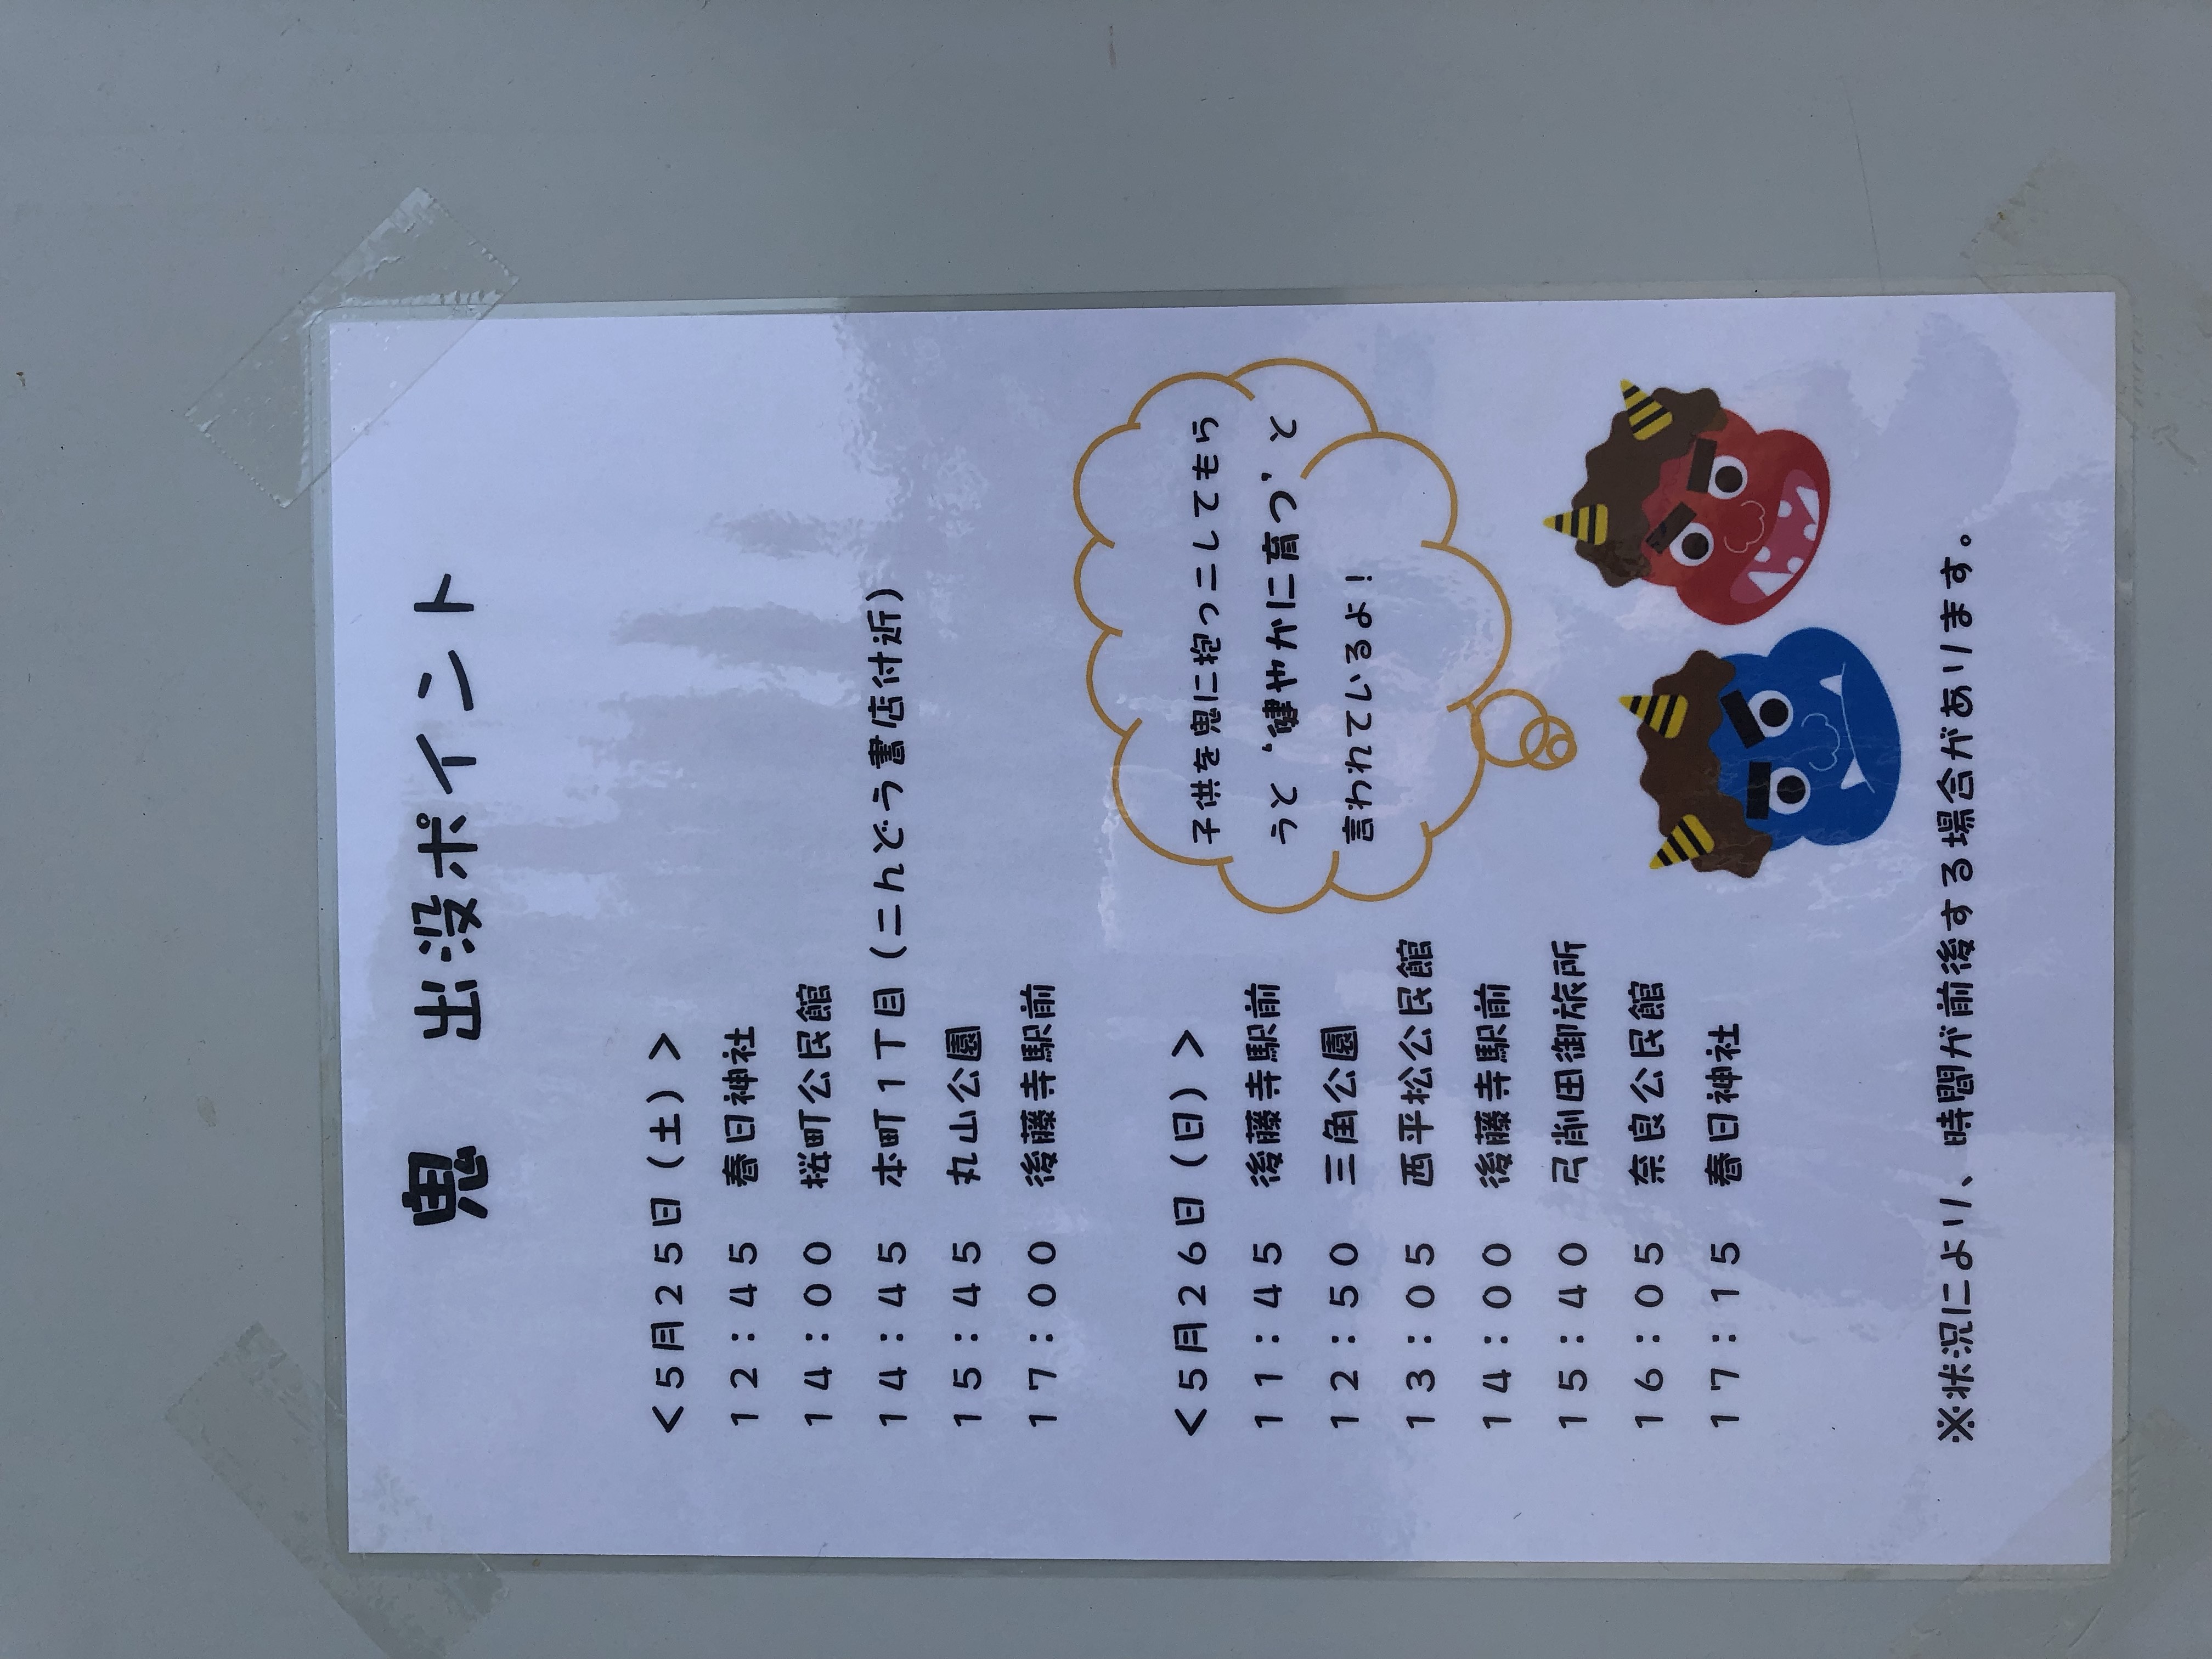 鬼　出没ポイント
＜５月２５日（土）＞
１２：４５　春日神社
１４：００　桜町公民館
１４：４５　本町１丁目（こんどう書店付近）
１５：４５　丸山公園
１７：００　後藤寺駅前
＜５月２６日（日）＞
１１：４５　後藤寺駅前
１２：５０　三角公園
１３：０５　西平松公民館
１４：００　後藤寺駅前
１５：４０　弓削田御旅所
１６：０５　奈良公民館
１７：１５　春日神社
子供を鬼に抱っこしてもら
うと，健やかに育つ，と
言われているよ！
※状況により、時間が前後する場合があります。